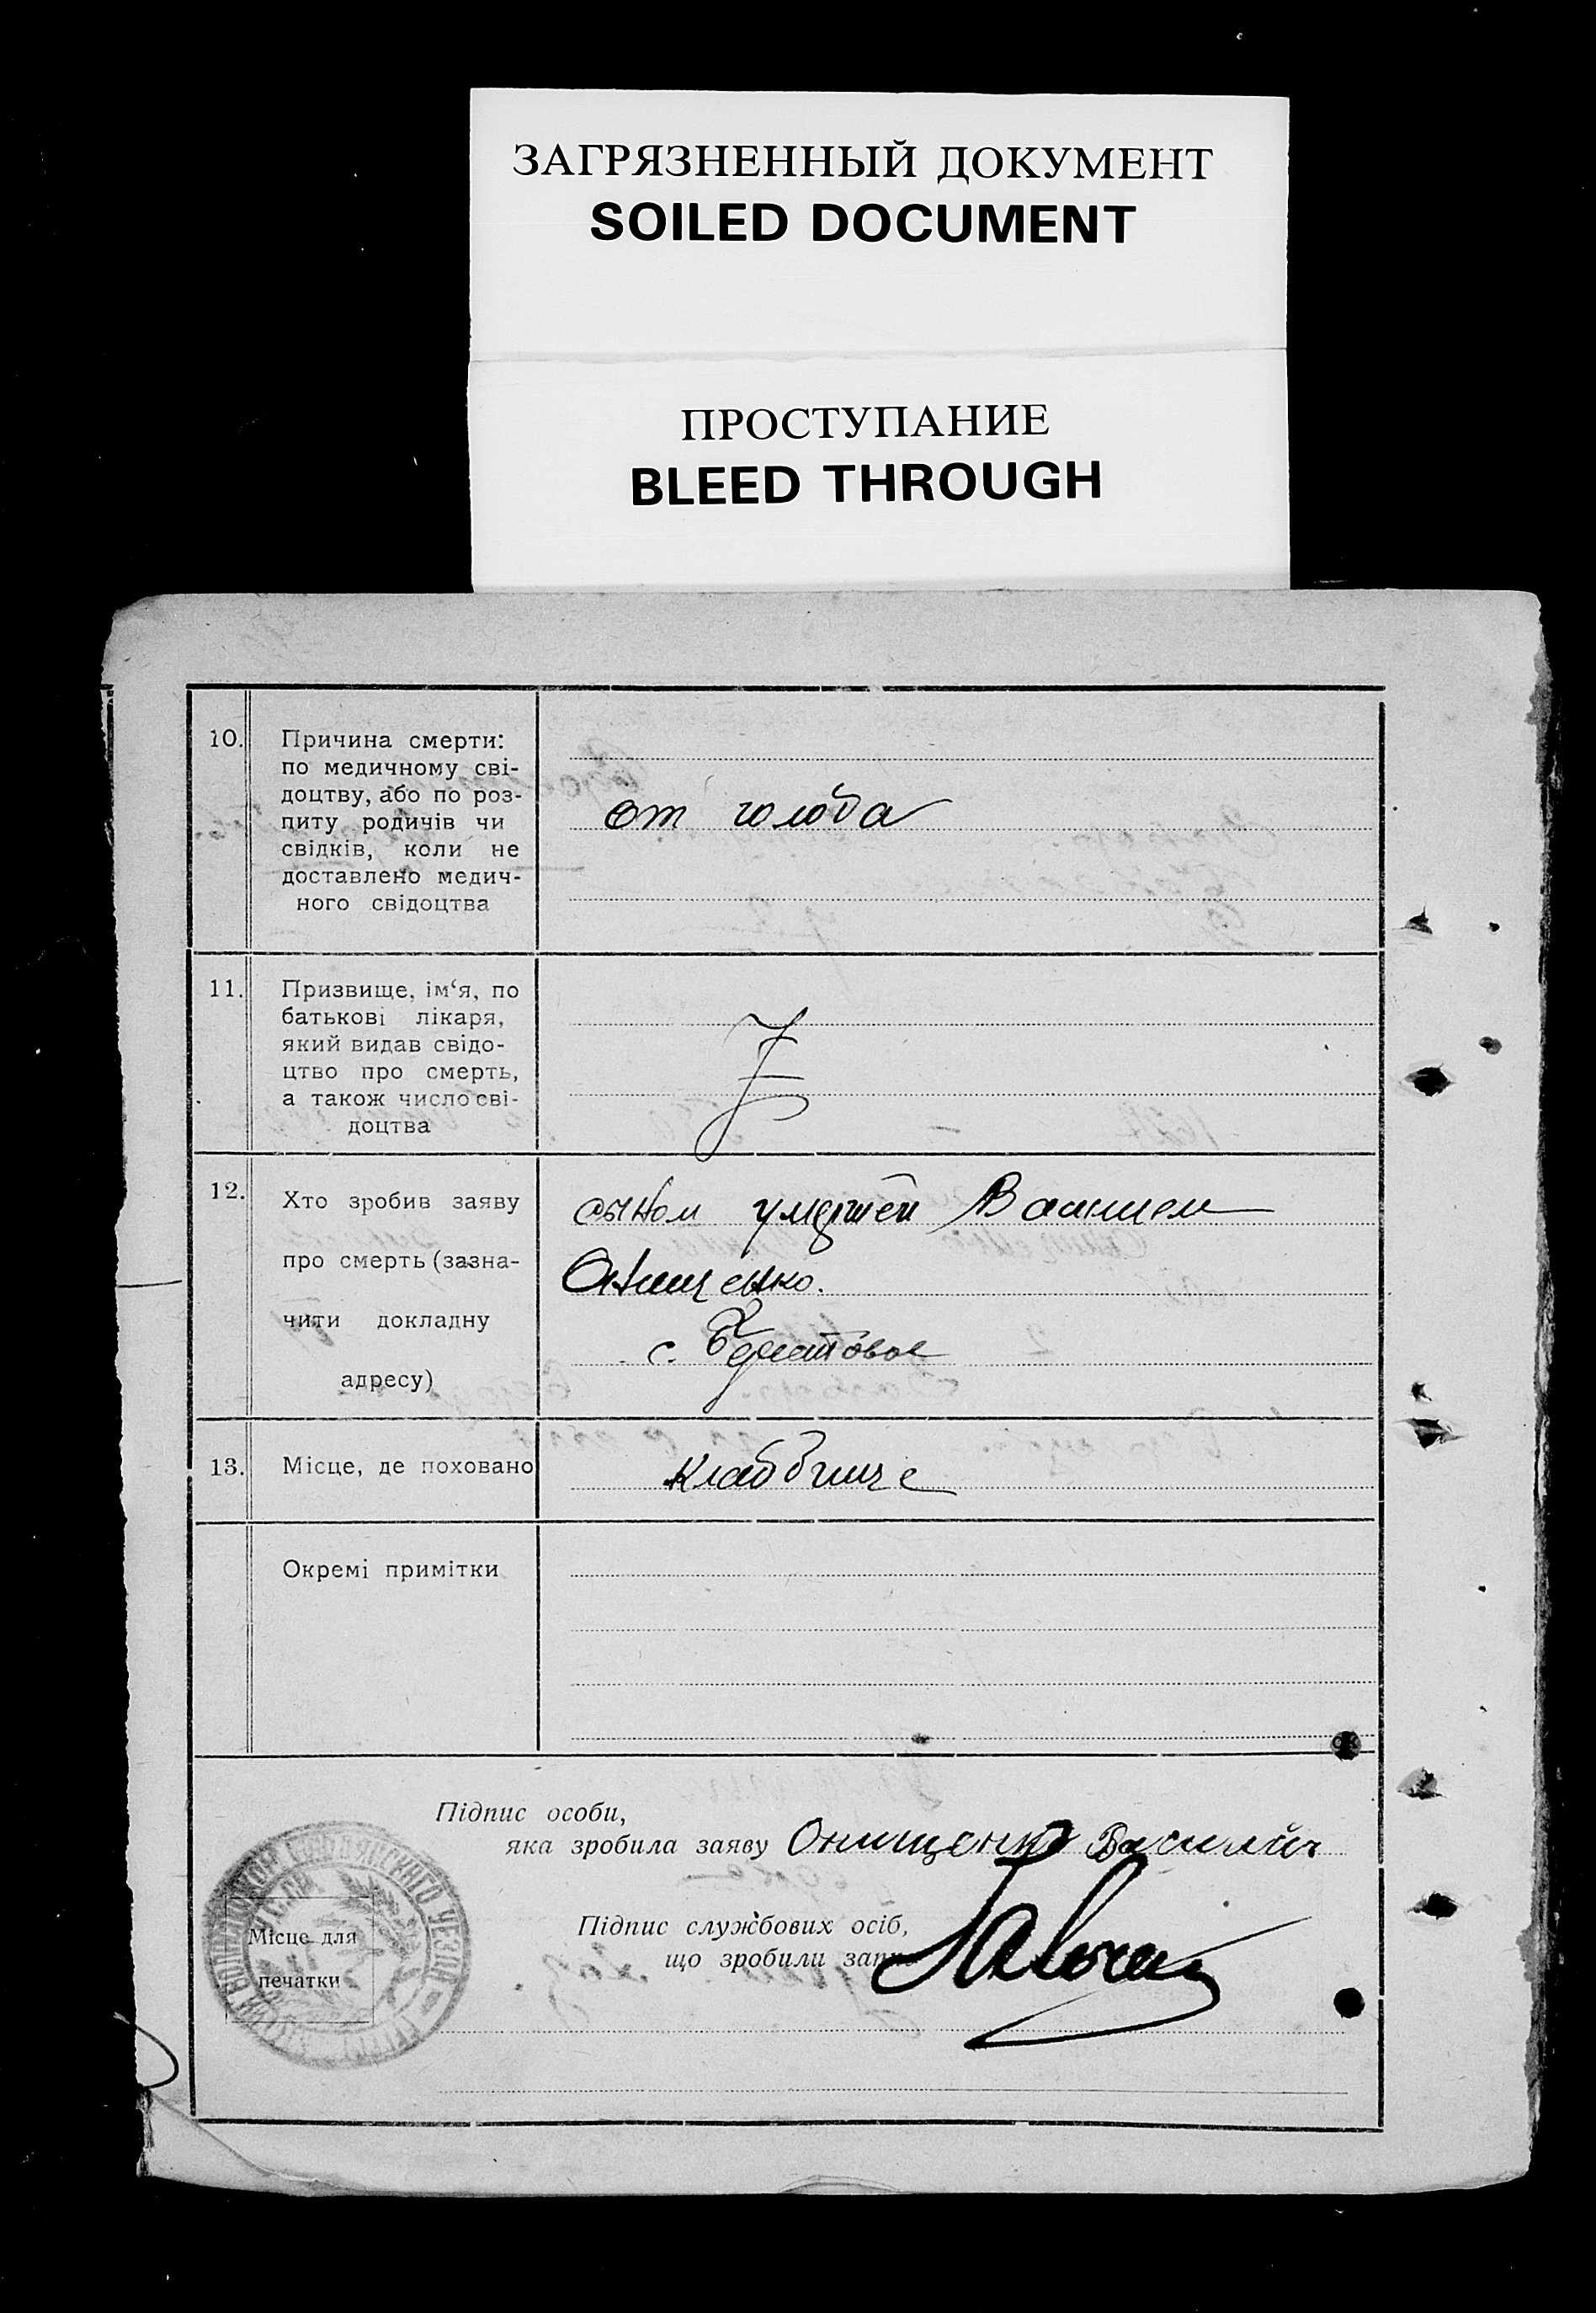 ЗАГРЯЗНЕННЫЙ ДОКУМЕНТ
SOILED DOCUMENT
ПРОСТУПАНИЕ
BLEED THROUGH
10. Причина смерти:
по медичному сві-
доцтву, або по роз-
питу родичів чи
свідків, коли не
доставлено медич-
ного свідоцтва
от голода
11. Призвище, ім‘я, по
батькові лікаря,
який видав свідо-
цтво про смерть,
а також число сві-
доцтва
12. Хто зробив заяву
про смерть (зазна-
чити докладну
адресу)
сыном умершей
Онищенко.
с. Берестовое
13. Місце, де поховано
кладбище
Окремі примітки
Підпис особи,
яка зробила заяву Онищенко Василий
Підпис службових осіб,
що зробили запис
Місце для
печатки